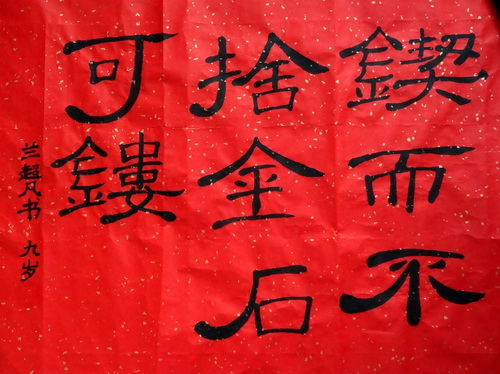 鍥而不
捨金石
可鏤
兰超凡书 九岁